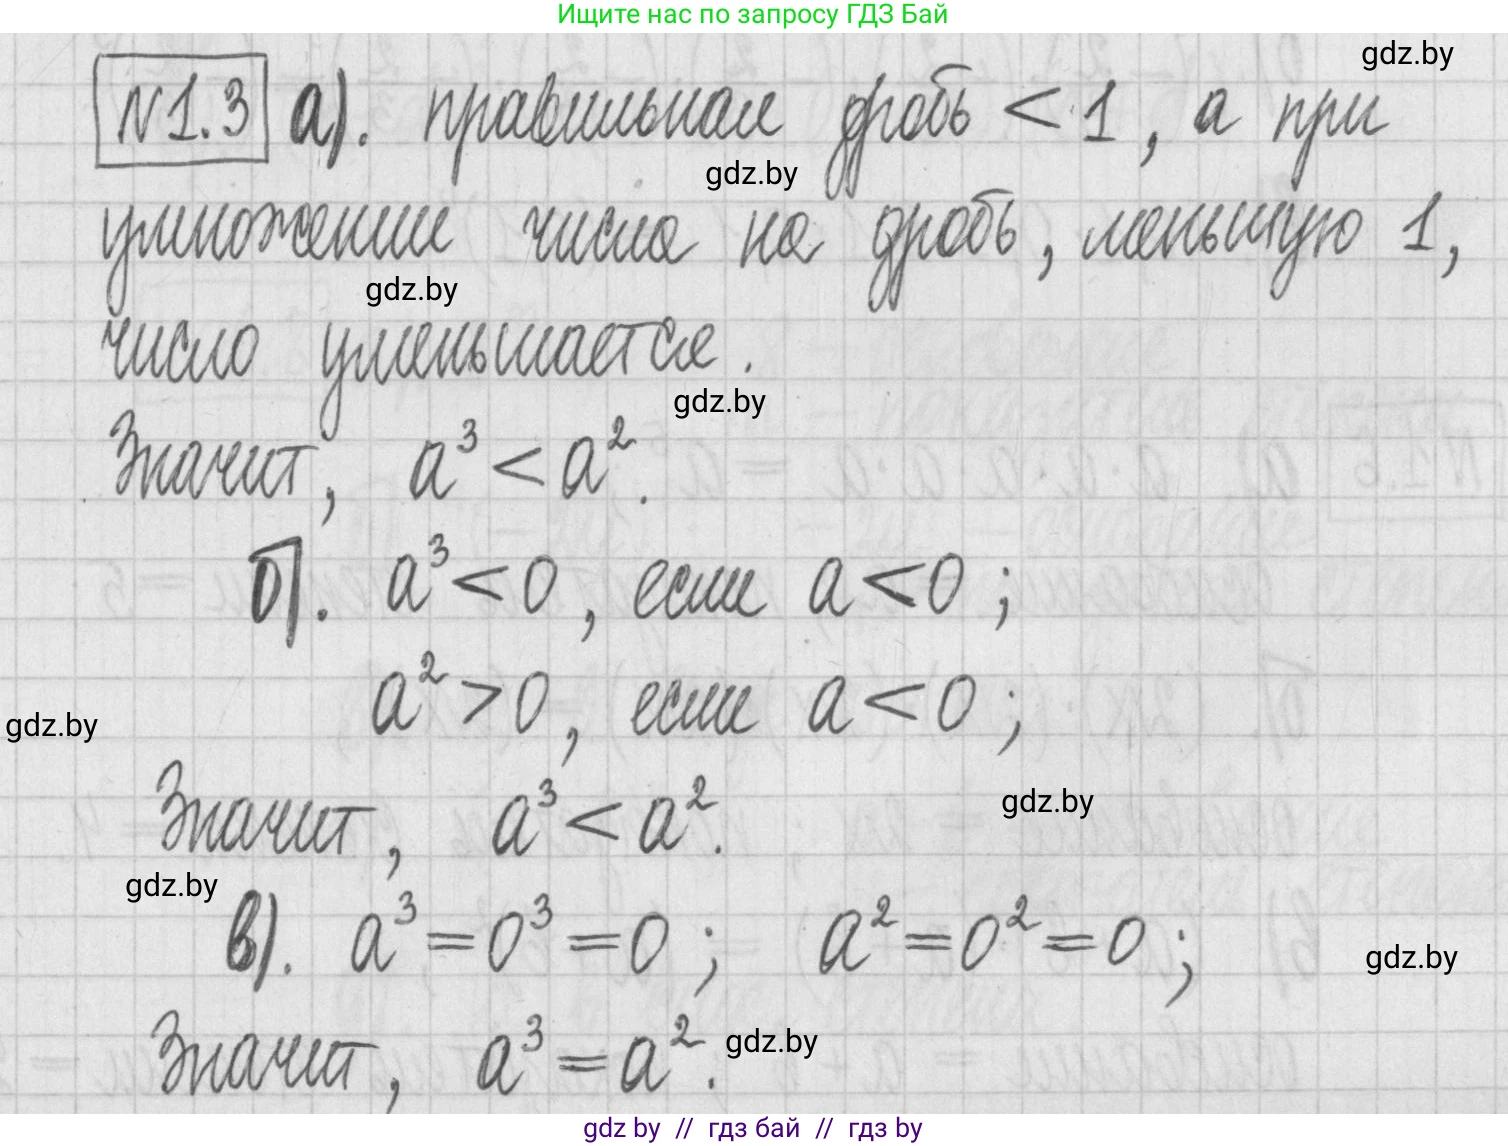 Ищите нас по запросу ГДЗ Бай
gdz.by
№1.3 а). правильная дробь < 1, а при
gdz.by
умножении числа на дробь, меньшую 1,
gdz.by
число уменьшается.
gdz.by
Значит, a³ < a².
б). a³ < 0, если a < 0;
a² > 0, если a < 0;
gdz.by
Значит, a³ < a².
gdz.by
gdz.by
в). a³ = 0³ = 0; a² = 0² = 0;
gdz.by
Значит, a³ = a².
gdz.by
gdz by // гдз бай // гдз by